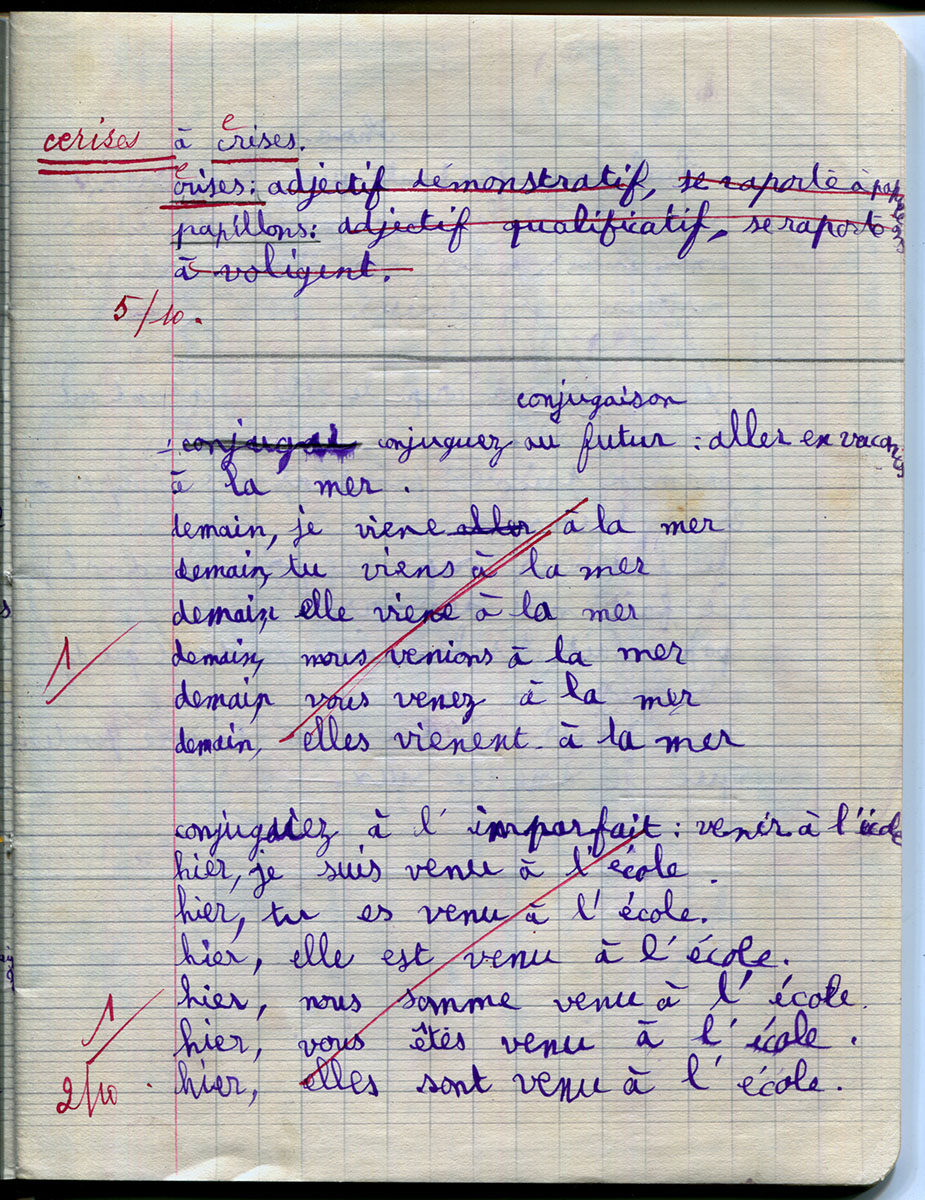 cerises à crises.
e
crises: adjectif démonstratif, se raporte à papillons
e
papillons: adjectif qualificatif, se raporte
à voligent.
5/10.
conjugaison
conjugal conjuguez au futur : aller en vacances
à la mer.
demain, je viene aller à la mer
demain, tu viens à la mer
demain, elle viene à la mer
demain, nous venions à la mer
1
demain vous venez à la mer
demain, elles vienent à la mer
conjuguiez à l'imparfait : venir à l'école
hier, je suis venu à l'école.
hier, tu es venu à l'école.
hier, elle est venu à l'école.
hier, nous somme venu à l'école.
1
hier, vous êtes venu à l'école.
2/10. hier, elles sont venu à l'école.